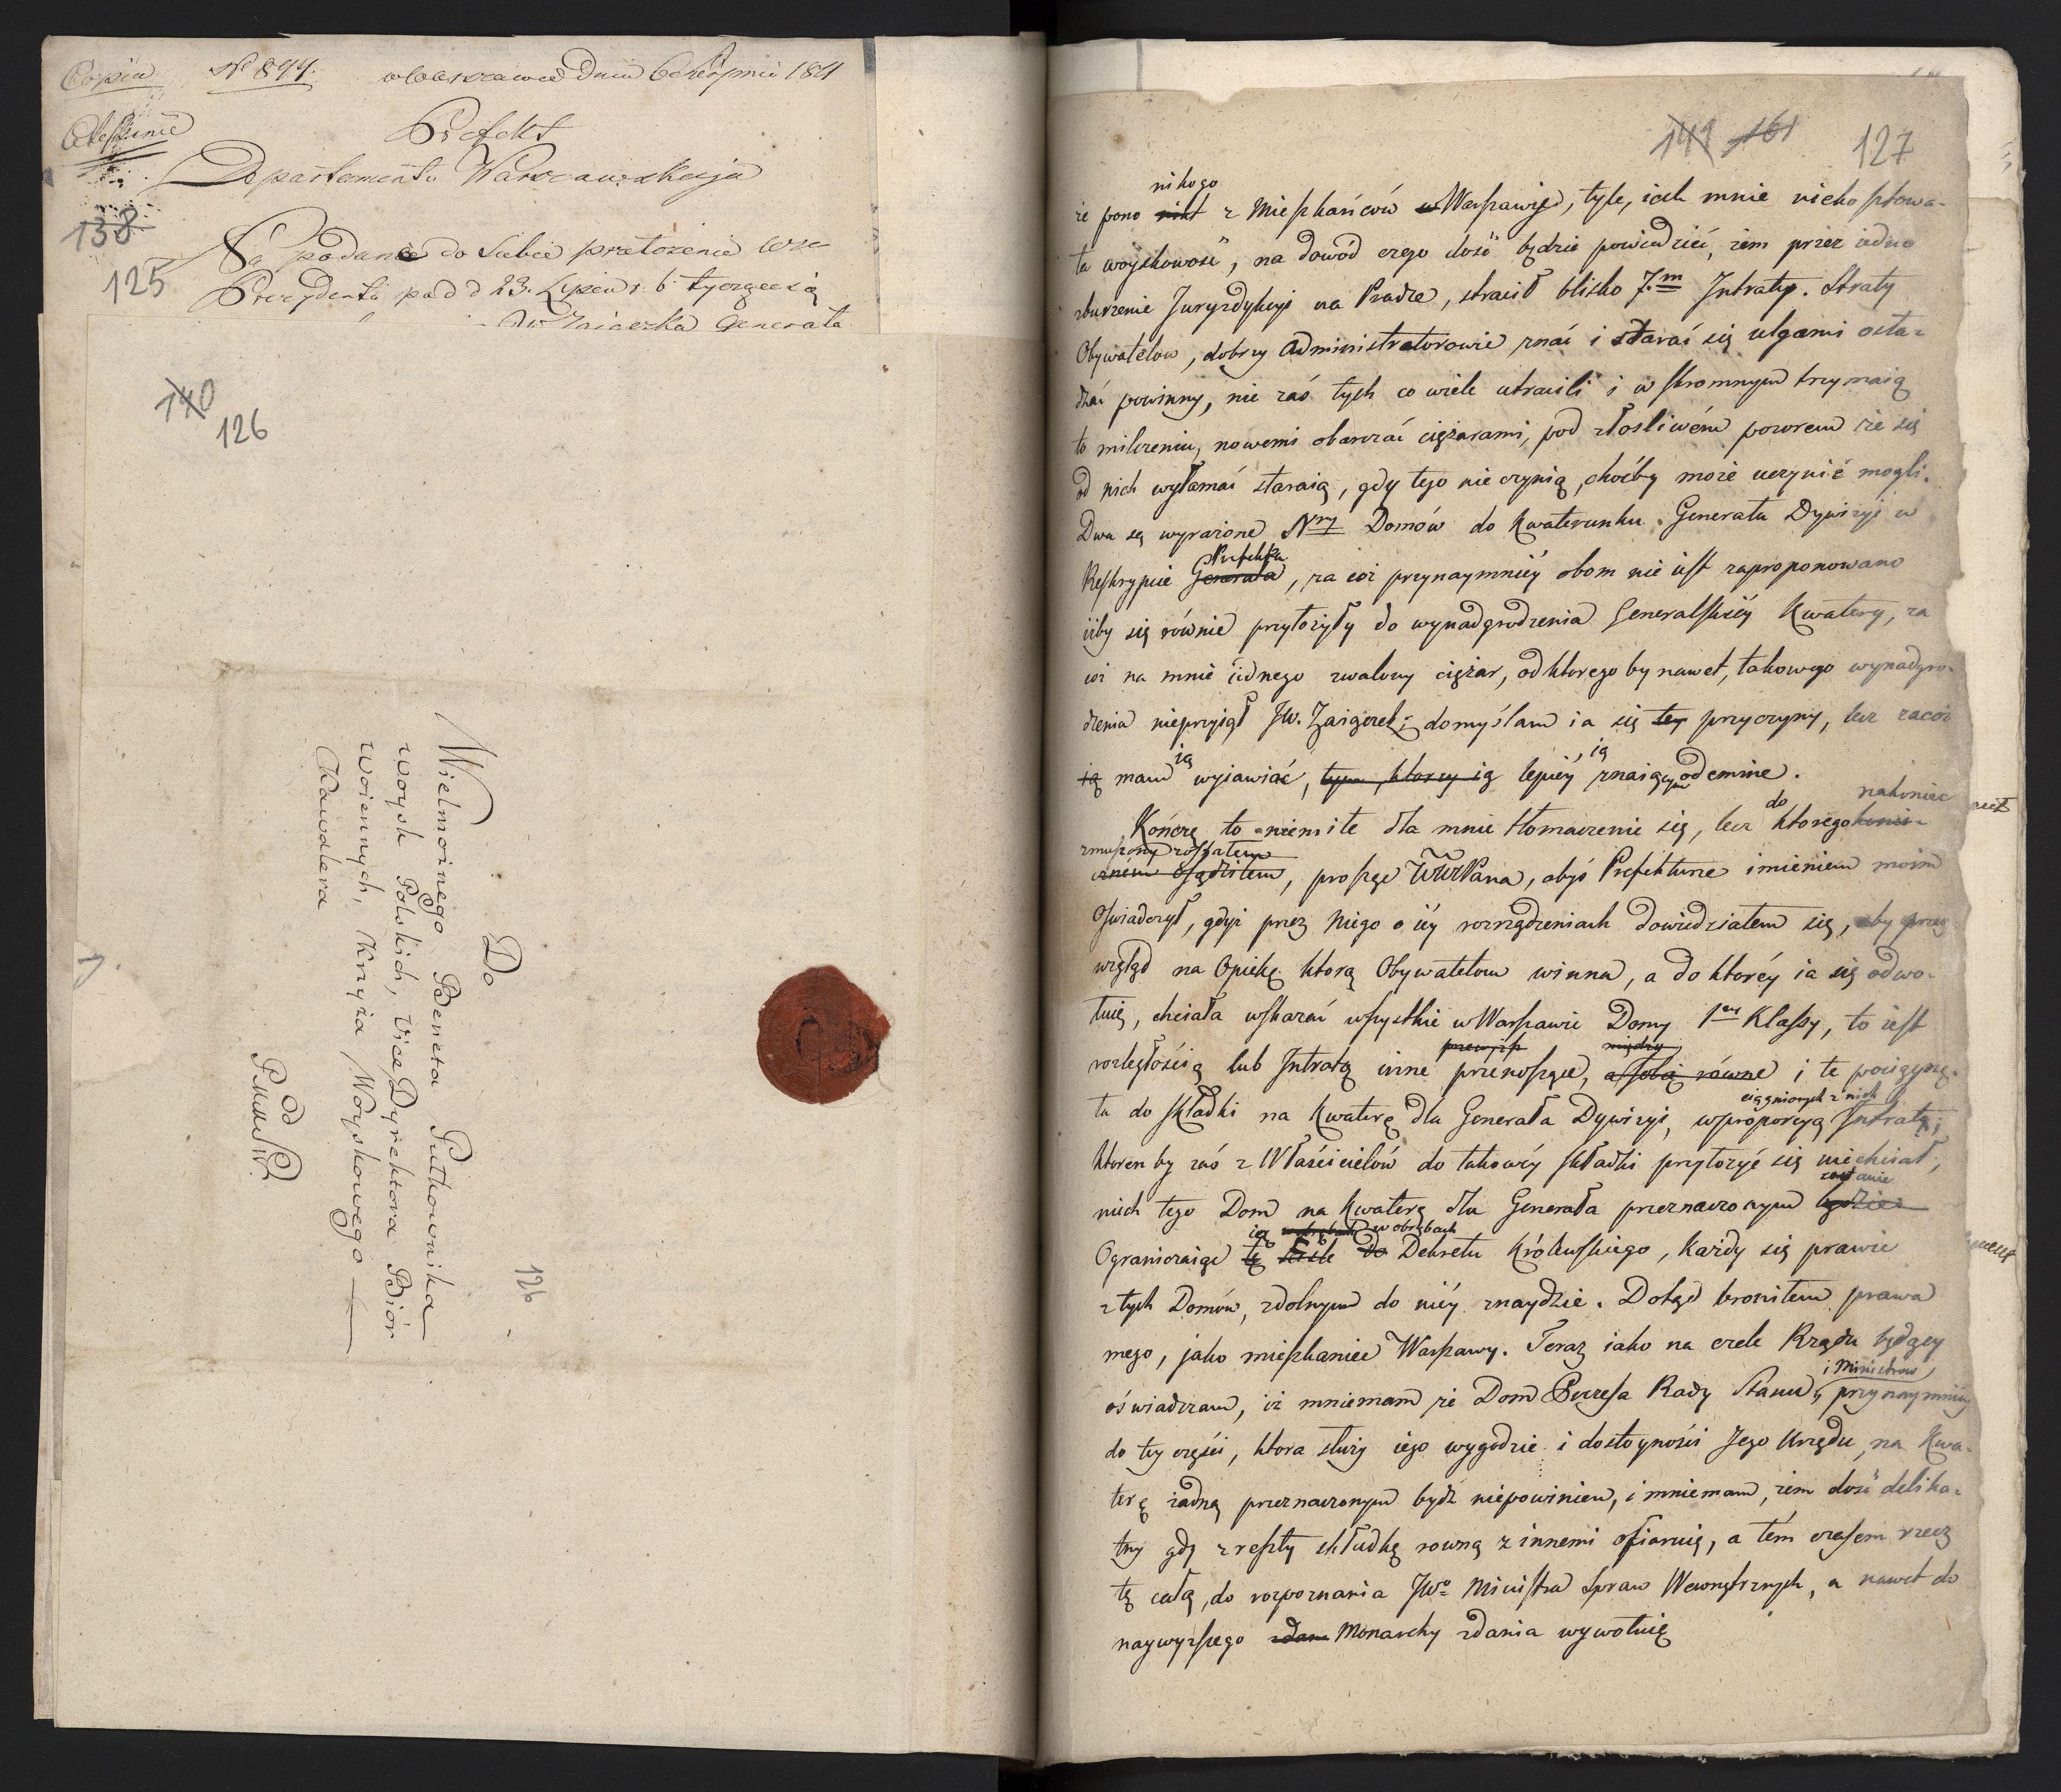 Copia N° 894. w Warszawie Dnia 6 Sierpnia 1811
Prefekt
Departamentu Warszawskiego
138
125
Na podane do Siebie przełożenie
Prezydenta pod d 23. Lypca r. b. tyczące się
Zaiączka Generała
140
126
Do
Wielmoznego Beneta Pułkownika
woysk Polskich, Vice Dyrektora Biór
woiennych, Krzyża Woyskowego
Kawalera
od
126
149 161 127
nikogo
że pono nikt z Mieszkańców w Warszawie, tyle, ieth mnie niekosztowa-
ła woyskowość, na dowód czego dość będzie powiedzieć, żem przez iedno
zburzenie Juryzdykcyi na Pradze, stracił blisko 7.m Intraty. Straty
Obywatelow, dobrzy Administratorowie znać i starać się ulgami osła-
dzać powinny, nie zaś tych co wiele utracili i w skromnym trzymaią
to milczeniu, nowemi obarczać ciężarami, pod złosliwém pozorem że się
od nich wyłamać staraią, gdy tego nie czynią, choćby może uczynić mogli.
Dwa są wyrażone Nry Domów do Kwaterunku Generała Dywizyi w
Prefekta
Reskrypcie Generała, za coż przynaymniéy obom nie iest zaproponowano
iżby się równie przyłożyły do wynadgrodzenia Generalskiéy Kwatery, za
coż na mnie iednego zwalony ciężar, od ktorego by nawet, takowego wynadgro-
dzenia nieprzyiął JW. Zaiączek; domyślam ia się tey przyczyny, lecz zacoż
ią ią
ią mam wyiawiać, tym, ktorzy ią lepiéy znaiącym odemnie.
do nakoniec
Kończę to niemiłe dla mnie tłomaczenie się, lecz ktorego konie-
zmuszony zostałem
czném osądziłem, proszę WWPana, abyś Prefekturze imieniem moim
Oświadczył, gdyż przez Niego o iéy rozrządzeniach dowiedziałem się, aby przez
wzgląd na Opiekę ktorą Obywatelom winna, a do ktoréy ia się odwo-
łuię, chciała wskazać wszystkie w Warszawie Domy 1ey Klassy, to iest
przewyższ między
rozległością lub Intratą inne przenoszące, a sobą równe i te pociągnę-
ciągnionych z nich
ła do Składki na Kwaterę dla Generała Dywizyi, w proporcyą Intraty;
ktoren by zaś z Właścicielów do takowéy składki przyłożyć się niechciał,
zostanie
niech tego Dom na Kwaterę dla Generała przeznaczonym będzie
ią w obrębach
Ograniczaiąc tę do Dekretu Królewskiego, Każdy się prawie
z tych Domów, zdolnym do niéy znaydzie. Dotąd broniłem prawa
mego, jako mieszkaniec Warszawy. Teraz iako na czele Rządu będący
i Ministrow
oświadczam, iż mniemam że Dom Prezesa Rady Stanu, przynaymniéy
do téy części, ktora służy iego wygodzie i dostoyności Jego Urzędu, na Kwa-
terę żadną przeznaczonym bydź niepowinien, i mniemam, żem dość delika-
tny gdy zreszty składkę rowną z innemi ofiaruię, a tém czasem rzecz
tę całą, do rozpoznania JWo Ministra Spraw Wewnętrznych, a nawet do
naywyższego zdan Monarchy zdania wywołuię